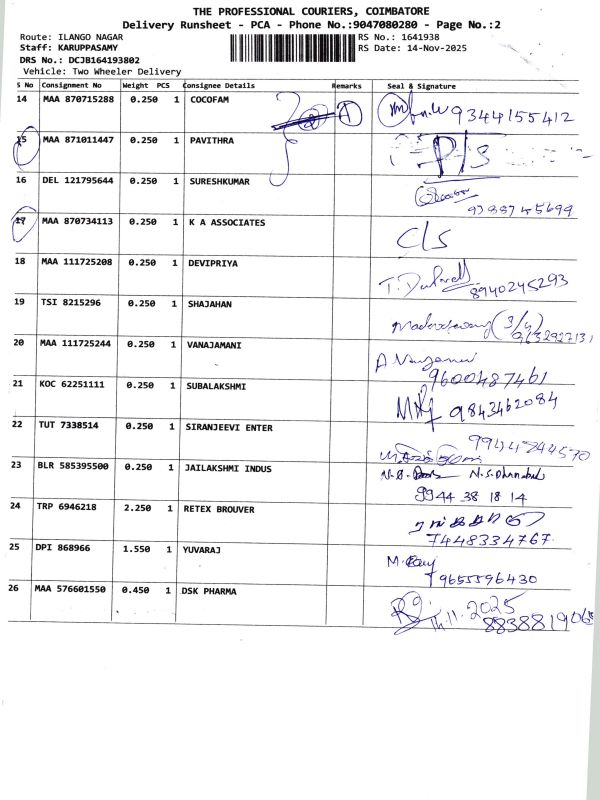 THE PROFESSIONAL COURIERS, COIMBATORE
Delivery Runsheet - PCA - Phone No.:9047080280 - Page No.:2
Route: ILANGO NAGAR RS No.: 1641938
Staff: KARUPPASAMY RS Date: 14-Nov-2025
DRS No.: DCJB164193802
Vehicle: Two Wheeler Delivery
S No Consignment No Weight PCS Consignee Details Remarks Seal & Signature
14 MAA 870715288 0.250 1 COCOFAM A 9344155412
15 MAA 871011447 0.250 1 PAVITHRA P/S
16 DEL 121795644 0.250 1 SURESHKUMAR
9788745699
17 MAA 870734113 0.250 1 K A ASSOCIATES C/S
18 MAA 111725208 0.250 1 DEVIPRIYA
8940245293
19 TSI 8215296 0.250 1 SHAJAHAN (3/4)
20 MAA 111725244 0.250 1 VANAJAMANI
9600487461
21 KOC 62251111 0.250 1 SUBALAKSHMI 9843462084
22 TUT 7338514 0.250 1 SIRANJEEVI ENTER 9944244570
23 BLR 585395500 0.250 1 JAILAKSHMI INDUS N.S.Dhanabal
9944 38 18 14
24 TRP 6946218 2.250 1 RETEX BROUVER
7448334767
25 DPI 868966 1.550 1 YUVARAJ
9655596430
26 MAA 576601550 0.450 1 DSK PHARMA
14.11.2025
8838819065